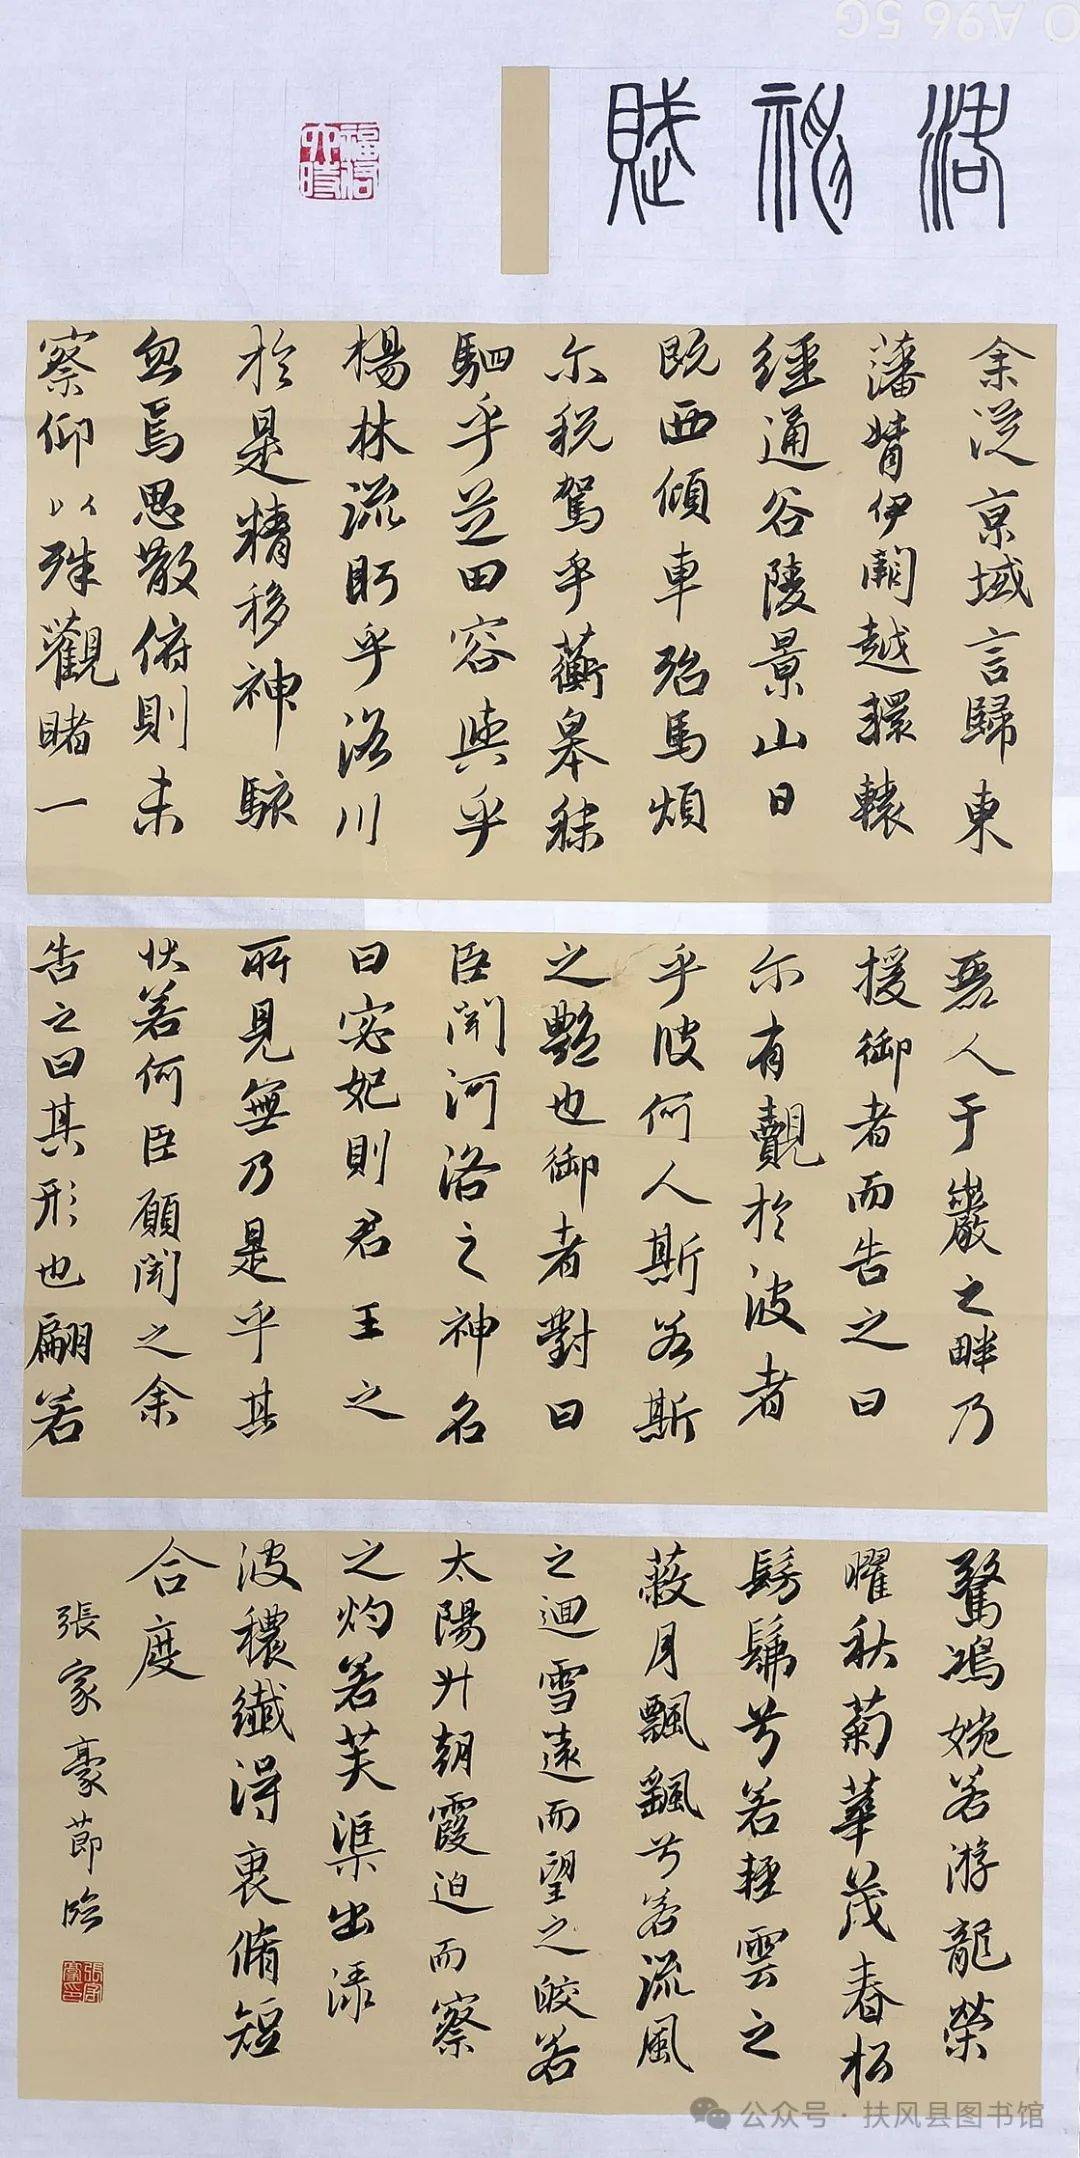 洛神賦
福倍六時
余從京域言歸東
藩背伊闕越轘轅
經通谷陵景山日
既西傾車殆馬煩
尒税駕乎蘅皋秣
駟乎芝田容與乎
楊林流盻乎洛川
於是精移神駭
忽焉思散俯則未
察仰以殊觀睹一
麗人于巖之畔乃
援御者而告之曰
尒有覿於彼者
乎彼何人斯若斯
之艷也御者對曰
臣聞河洛之神名
曰宓妃則君王之
所見無乃是乎其
狀若何臣願聞之余
告之曰其形也翩若
驚鴻婉若游龍榮
曜秋菊華茂春松
髣髴兮若輕雲之
蔽月飄颻兮若流風
之迴雪遠而望之皎若
太陽升朝霞迫而察
之灼若芙渠出淥
波穠纖得衷脩短
合度
張家豪節臨
張家豪印
公众号·扶风县图书馆